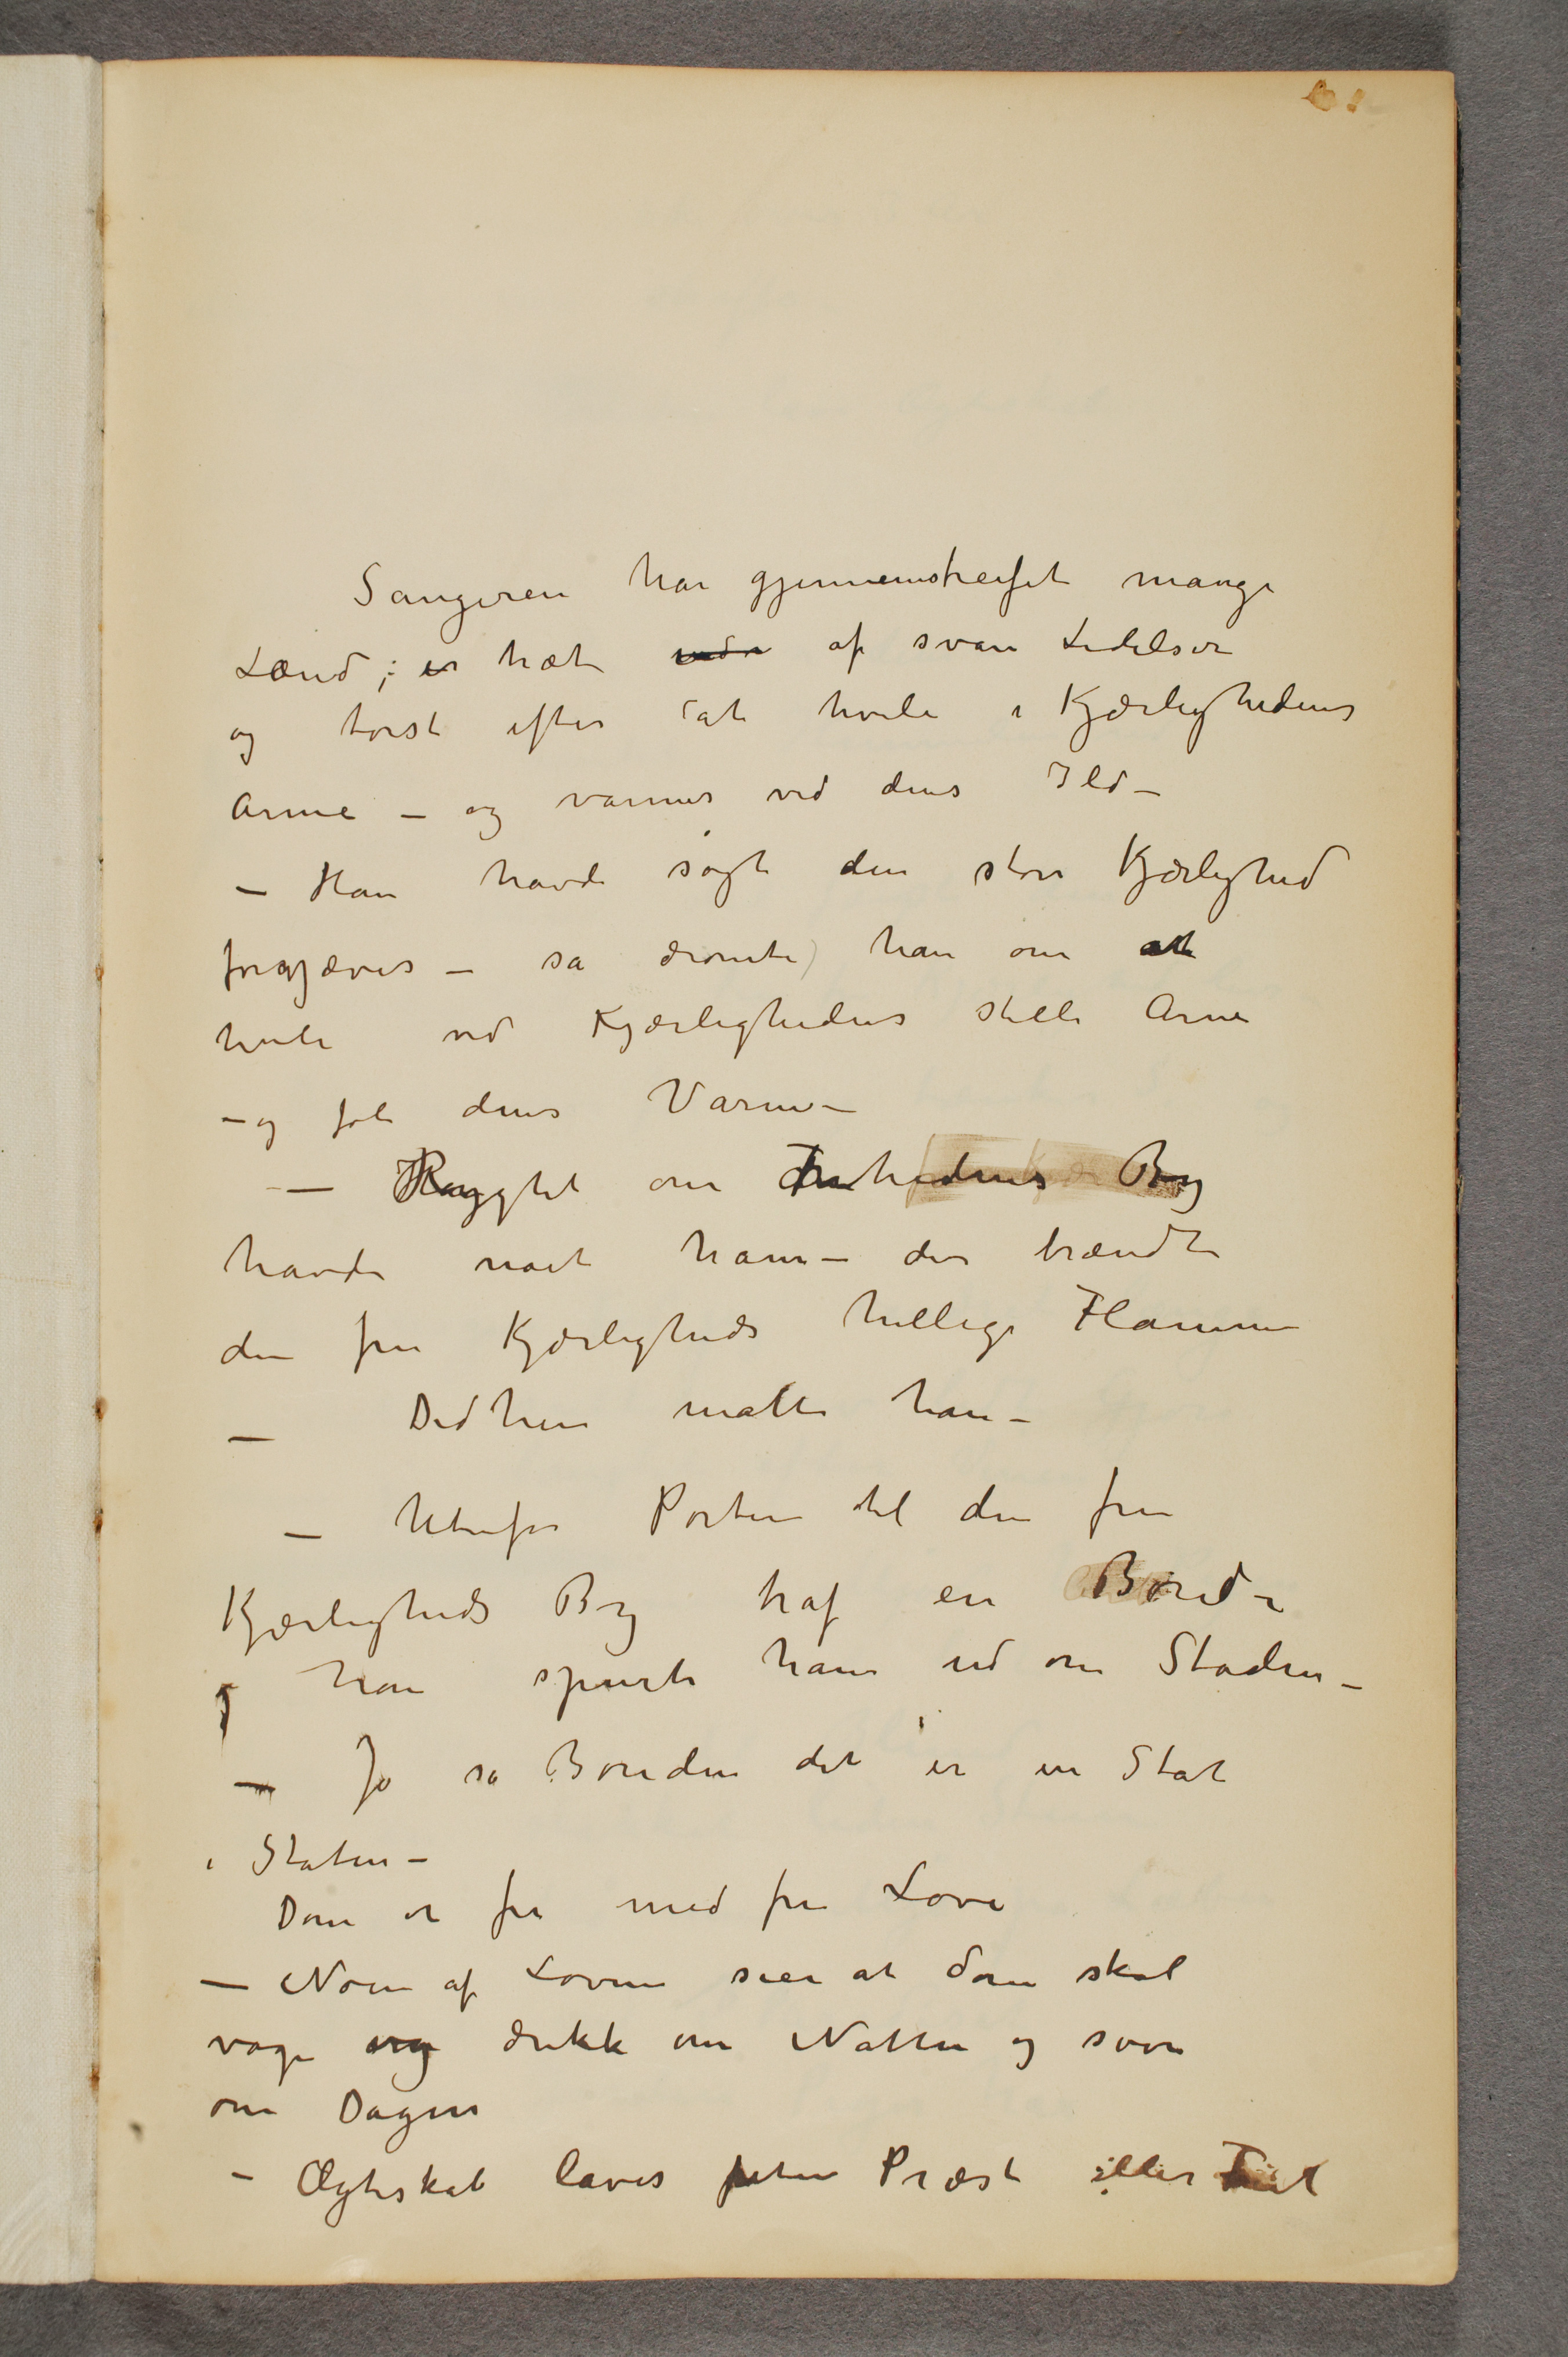 Sangeren har gjennemstreifet mange
Land; er træt af svare Lidelser
og tørst efter at hvile i Kjærlighedens
Arme – og varmes ved dens Ild –
– Han havde søgt den store Kjærlighed
forgjæves – så drømte han om at
hvile ved Kjærlighedens stille Arne
– og føle dens Varme –
– Rygtet om Frihedens By
havde nået ham – der brændte
den frie Kjærligheds hellige Flamme
– Did hen måtte han –
– Utenfor Porten til den frie
Kjærligheds By traf en Bonde
og han spurte ham ud om Staden –
– Jo sa Bonden det er en Stat
i Staten –
Dom er fri med frie Love
– Noen af Lovene sier at dom skal
våge og drikke om Natten og sove
om Dagen
– Ægteskab laves uten Præst eller